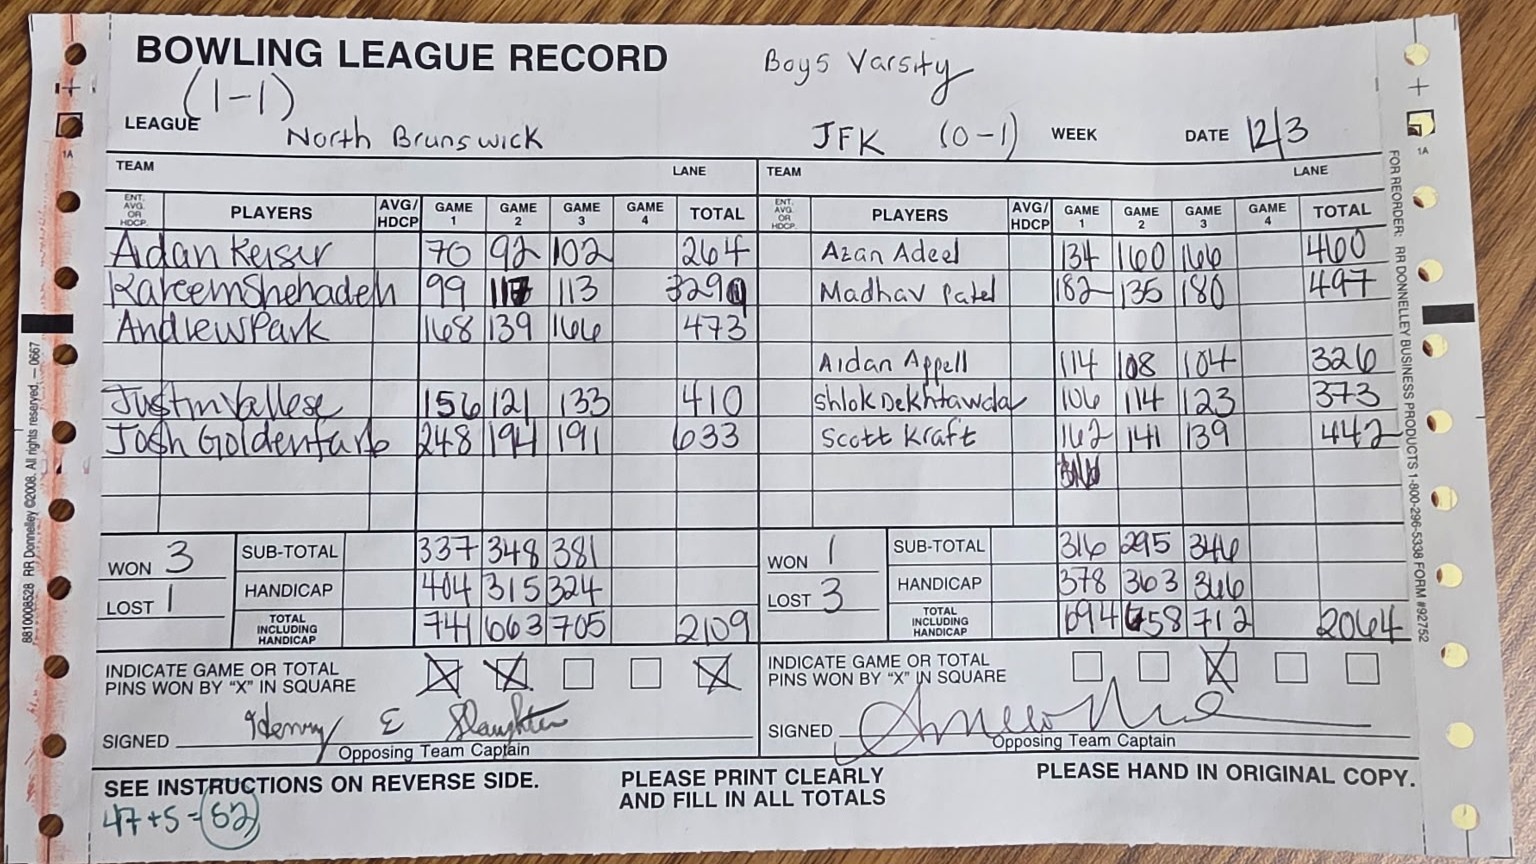 BOWLING LEAGUE RECORD
Boys Varsity
(1-1)
LEAGUE North Brunswick JFK (0-1) WEEK DATE 12/3
TEAM LANE TEAM LANE
ENT. AVG. OR HDCP. PLAYERS AVG/HDCP GAME 1 GAME 2 GAME 3 GAME 4 TOTAL ENT. AVG. OR HDCP. PLAYERS AVG/HDCP GAME 1 GAME 2 GAME 3 GAME 4 TOTAL
Aidan Keiser 70 92 102 264 Azan Adeel 134 160 166 460
Kareem Shehadeh 99 117 113 329 Madhav Patel 182 135 180 497
Andrew Park 168 139 166 473
Aidan Appell 114 108 104 326
Justin Vallese 156 121 133 410 Shlok Dekhtawala 106 114 123 373
Josh Goldenfarb 248 194 191 633 Scott Kraft 162 141 139 442
WON 3 SUB-TOTAL 337 348 381 WON 1 SUB-TOTAL 316 295 346
LOST 1 HANDICAP 404 315 324 LOST 3 HANDICAP 378 363 366
TOTAL INCLUDING HANDICAP 741 663 705 2109 TOTAL INCLUDING HANDICAP 694 658 712 2064
INDICATE GAME OR TOTAL PINS WON BY "X" IN SQUARE X X X INDICATE GAME OR TOTAL PINS WON BY "X" IN SQUARE X
SIGNED Henry E Slaughter SIGNED
Opposing Team Captain Opposing Team Captain
SEE INSTRUCTIONS ON REVERSE SIDE. PLEASE PRINT CLEARLY AND FILL IN ALL TOTALS PLEASE HAND IN ORIGINAL COPY.
47+5=52
8810008528 RR Donnelley ©2008. All rights reserved. — 0667
FOR REORDER: RR DONNELLEY BUSINESS PRODUCTS 1-800-296-5338 FORM #92752
1A
1A